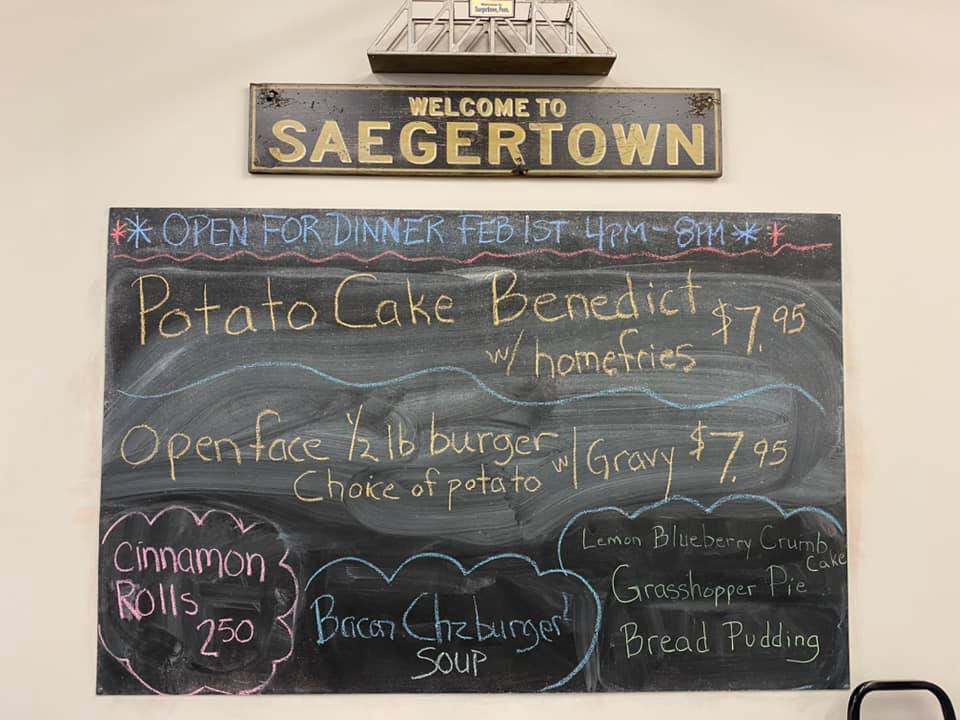 Saegertown, Penn.
WELCOME TO
SAEGERTOWN
** OPEN FOR DINNER FEB 1ST 4PM - 8PM **
Potato Cake Benedict $7.95
w/ homefries
Open face 1/2 lb burger w/ Gravy $7.95
Choice of potato
Cinnamon
Rolls
250
Bacon Chzburger
SOUP
Lemon Blueberry Crumb
Cake
Grasshopper Pie
Bread Pudding